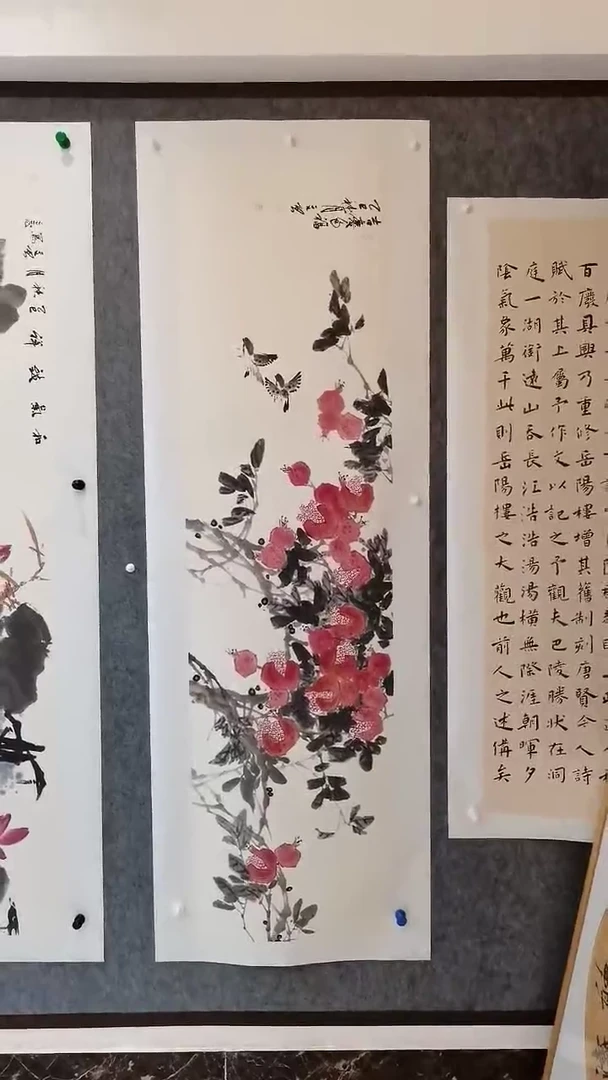 百廢具興乃重修岳陽樓增其舊制刻唐賢今人詩
賦於其上屬予作文以記之予觀夫巴陵勝狀在洞
庭一湖銜遠山吞長江浩浩湯湯橫無際涯朝暉夕
陰氣象萬千此則岳陽樓之大觀也前人之述備矣
乙巳秋月
和氣致祥